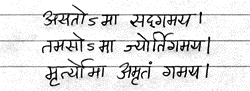 असतोऽमा सद्गमय।
तमसोऽमा ज्योर्तिगमय।
मृर्त्योमा अमृतं गमय।